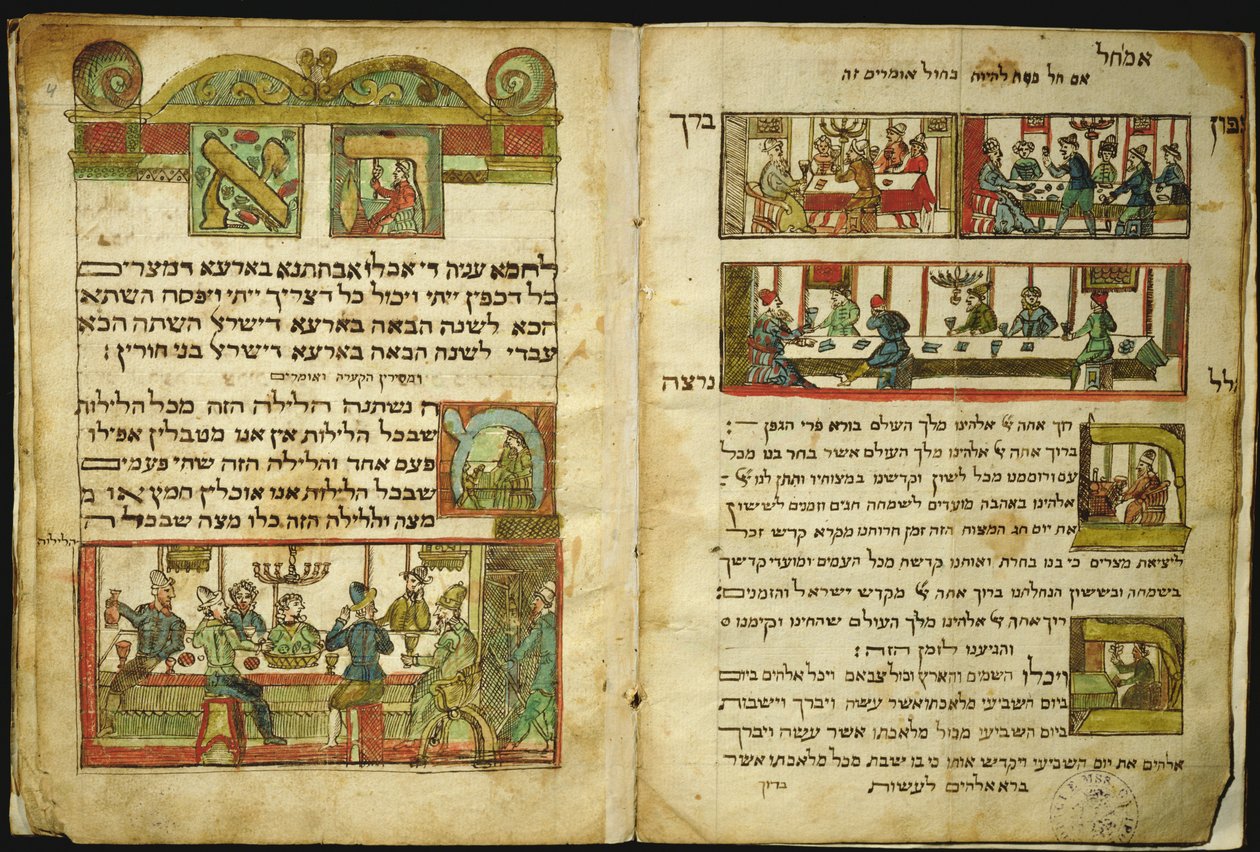 אמ'חל
אם חל פסח להיות בחול אומרים זה
צפון ברך
הלל נרצה
ברוך אתה יי אלהינו מלך העולם בורא פרי הגפן :
ברוך אתה יי אלהינו מלך העולם אשר בחר בנו מכל
עם ורוממנו מכל לשון וקדשנו במצותיו ותתן לנו יי
אלהינו באהבה מועדים לשמחה חגים וזמנים לששון
את יום חג המצות הזה זמן חרותנו מקרא קדש זכר
ליציאת מצרים כי בנו בחרת ואותנו קדשת מכל העמים ומועדי קדשך
בשמחה ובששון הנחלתנו ברוך אתה יי מקדש ישראל והזמנים :
ברוך אתה יי אלהינו מלך העולם שהחינו וקימנו
והגיענו לזמן הזה :
ויכלו השמים והארץ וכל צבאם ויכל אלהים ביום
ביום השביעי מלאכתו אשר עשה ויברך וישבות
ביום השביעי מכל מלאכתו אשר עשה ויברך
אלהים את יום השביעי ויקדש אותו כי בו שבת מכל מלאכתו אשר
ברא אלהים לעשות
ברוך
4
הא
לחמא עניה די אכלו אבהתנא בארעא דמצרים
כל דכפין ייתי ויכול כל דצריך ייתי ויפסח השתא
הכא לשנה הבאה בארעא דישראל השתה הכא
עבדי לשנה הבאה בארעא דישראל בני חורין :
ומסירין הקערה ואומרים
מה נשתנה הלילה הזה מכל הלילות
שבכל הלילות אין אנו מטבלין אפילו
פעם אחד והלילה הזה שתי פעמים
שבכל הלילות אנו אוכלין חמץ או מ
מצה והלילה הזה כלו מצה שבכל ה
הלילות